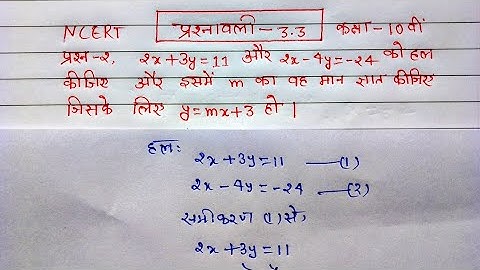 NCERT प्रश्नावली - 3.3 कक्षा - 10 वीं
प्रश्न-2. 2x+3y=11 और 2x-4y=-24 को हल
कीजिए और इसमें m का वह मान ज्ञात कीजिए
जिसके लिए y=mx+3 हो।
हल:
2x+3y=11 —(1)
2x-4y=-24 —(2)
समीकरण (1) से,
2x+3y=11